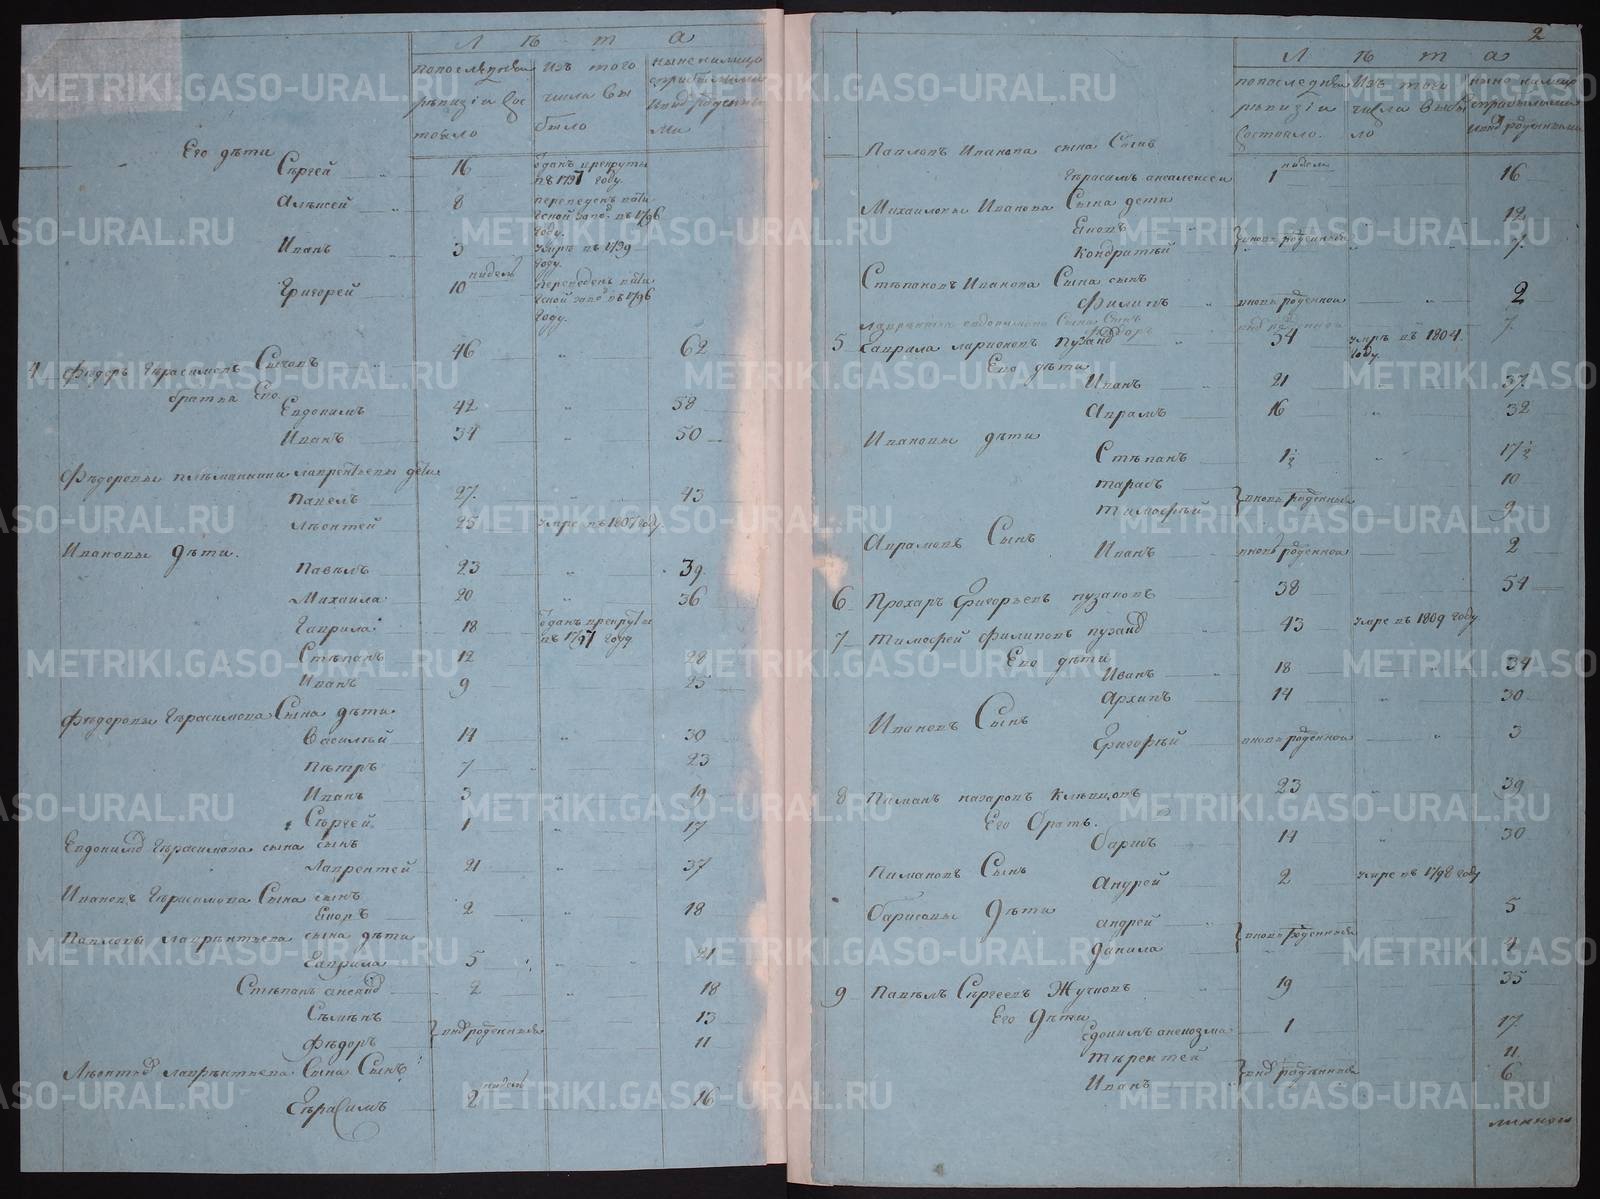 Л ѣ т а
попослѣдней ревизіи состояло
Изъ того числа выбыло
ныне налицо сприбылыми ивновь рожденными
Его дѣти
Сѣргей 16 оданъ врекруты въ 1797 году.
Алѣксей 8 переведенъ въ 1796 году.
Иванъ 3 умре въ 1799 году.
Григорей 10 нидель переведенъ въ 1796 году.
4 Фѣдоръ Гѣрасимовъ Сычовъ 46 " 62
братья Его
Евдокимъ 42 " 58
Иванъ 34 " 50
Фѣдоровы племянники лаврентьевы дѣти
Павелъ 27 " 43
Лѣонтей 25 умре въ 1807 году.
Ивановы дѣти.
Павѣлъ 23 " 39
Михаила 20 " 36
Гаврила 18 оданъ врекруты въ 1797 году
Стѣпанъ 12 28
Иванъ 9 25
Фѣдоровы Гѣрасимова Сына дѣти
Василѣй 14 " 30
Пѣтръ 7 23
Иванъ 3 " 19
Сѣргей 1 " 17
Евдокимовъ Гѣрасимова сына сынъ
Лаврентей 21 " 37
Ивановъ Гѣрасимова Сына сынъ
Егоръ 2 " 18
Павловы лаврѣнтьева сына дѣти
Гаврила 5 " 21
Стѣпанъ 2 " 18
Сѣмѣнъ 13
вновь рожденныя
Фѣдоръ 11
Лѣонтьевъ лаврѣнтьева Сына Сынъ
Гѣрасимъ 2 нидель 16
2
Л ѣ т а
попоследней ревизіи Состояло.
Изъ того числа выбыло
ныне налицо сприбылыми ивновь рожденными
Павловъ Иванова сына Сынъ
Гѣрасимъ 1 нидель 16
Михайловы Иванова Сына дети
12
вновь рожденныя
Кондратѣй 7
Стѣпановъ Иванова Сына сынъ
Филипъ вновь рожденной " 2
лаврентья евдокимова Сына Сынъ
7
5 Гаврила ларионовъ Пузановъ 54 умре въ 1804. году.
Его дѣти
Иванъ 21 37
Аврамъ 16 " 32
Ивановы дѣти
Стѣпанъ 1½ " 17½
тарасъ 10
вновь рожденныя
тимофѣй 9
Аврамовъ Сынъ
Иванъ вновь рожденной 2
6 Прохаръ Григорьевъ пузановъ 38 54
7 Тимофей филиповъ пузановъ 43 умре въ 1809 году
Его дѣти
Иванъ 18 " 34
Архипъ 14 " 30
Ивановъ Сынъ
Григорѣй вновь рожденной " 3
8 Пиманъ назаровъ Клѣпцовъ 23 39
Его братъ.
барисъ 14 " 30
Пимановъ Сынъ
Андрей 2 умре въ 1798 году
барисовы дѣти
андрей 5
вновь рожденныя
данила 4
9 Павѣлъ Сѣргеевъ Жучковъ 19 35
Его дѣти
1 17
Тѣрентей 11
вновь рожденныя
Иванъ 6
METRIKI.GASO-URAL.RU